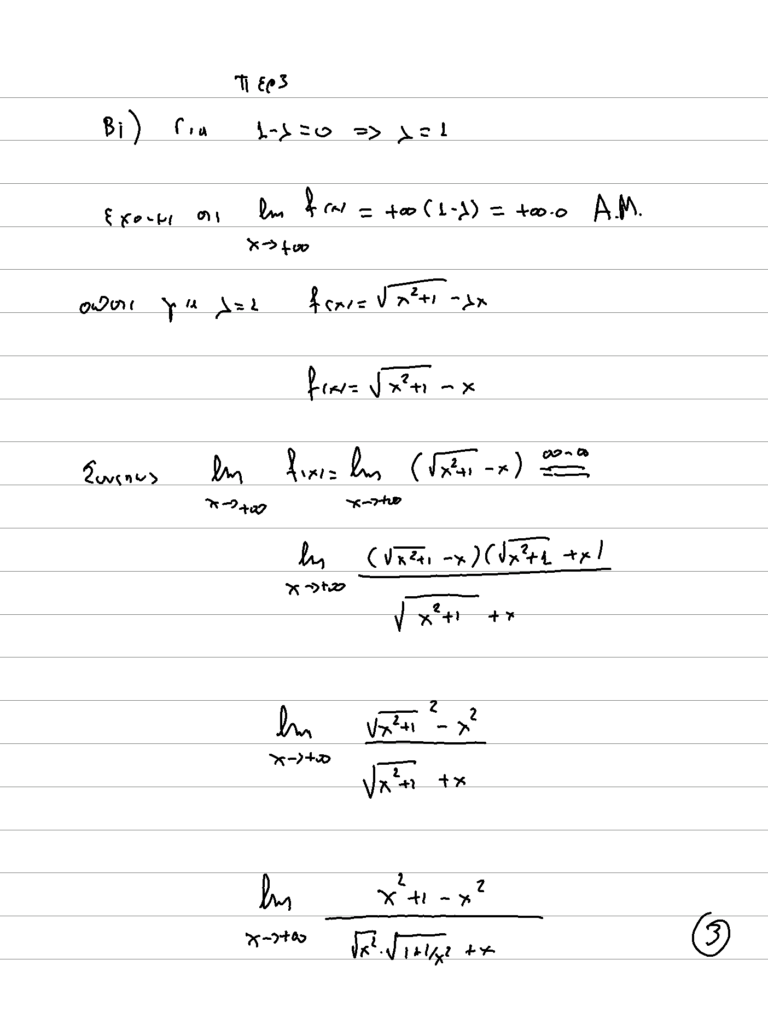 Περ 3
Βi) Για 1-λ=0 => λ=1
Εχουμε οτι lim f(x) = +∞(1-λ) = +∞·0 Α.Μ.
x→+∞
οποτε για λ=1 f(x)=√(x²+1) -λx
f(x)=√(x²+1) - x
Συνεπως lim f(x)= lim (√(x²+1) -x) ∞-∞ =
x→+∞ x→+∞
lim (√(x²+1) -x)(√(x²+1) +x)
x→+∞ √(x²+1) +x
lim √(x²+1)² - x²
x→+∞ √(x²+1) +x
lim x²+1 - x²
x→+∞ √x²·√(1+1/x²) +x
3